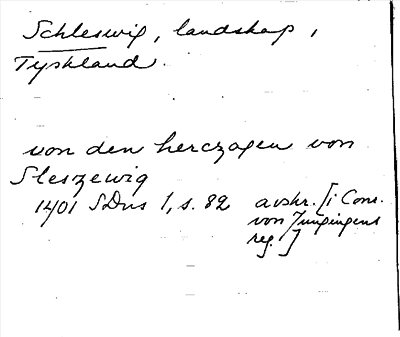 Schleswig, landskap,
Tyskland.
von den herczagen von
Sleszewig
1401 SDns 1, s. 82 avskr. [i Conr.
von Jungingens
reg.]